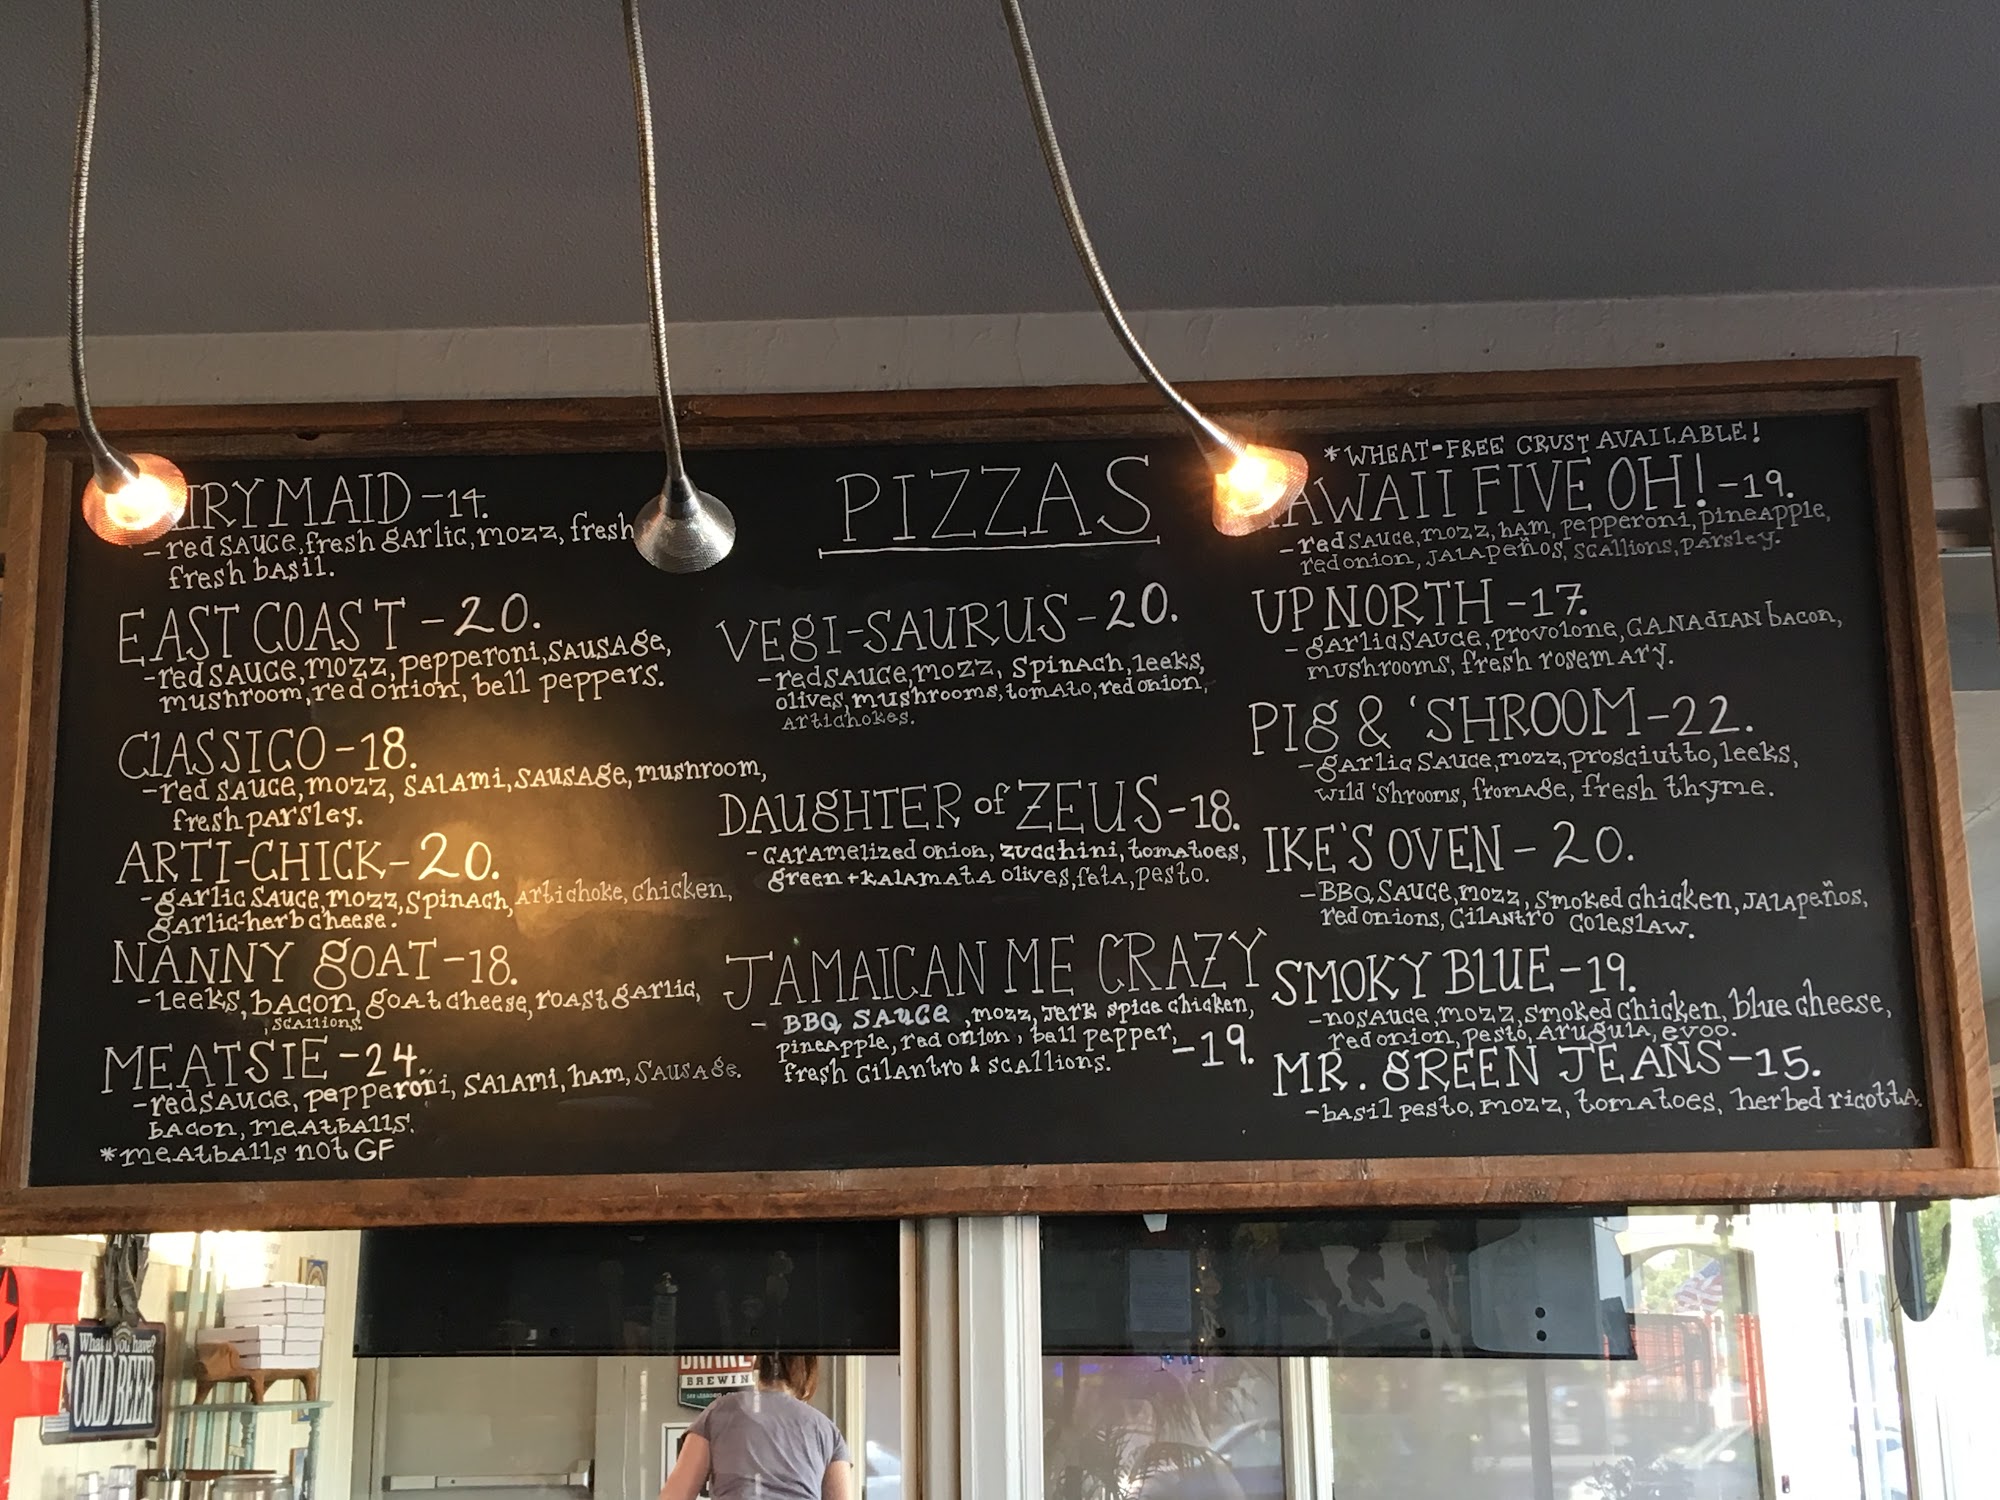 PIZZAS
IRY MAID -14.
- red sauce, fresh garlic, mozz, fresh
fresh basil.
EAST COAST - 20.
- red sauce, mozz, pepperoni, sausage,
mushroom, red onion, bell peppers.
CLASSICO - 18.
- red sauce, mozz, salami, sausage, mushroom,
fresh parsley.
ARTI-CHICK - 20.
- garlic sauce, mozz, spinach, artichoke, chicken,
garlic-herb cheese.
NANNY GOAT - 18.
- leeks, bacon, goat cheese, roast garlic,
, scallions.
MEATSIE - 24.
- red sauce, pepperoni, salami, ham, sausage.
bacon, meatballs.
*meatballs not GF
VEGI-SAURUS - 20.
- red sauce, mozz, spinach, leeks,
olives, mushrooms, tomato, red onion,
artichokes.
DAUGHTER of ZEUS - 18.
- caramelized onion, zucchini, tomatoes,
green + kalamata olives, feta, pesto.
JAMAICAN ME CRAZY
- BBQ SAUCE, mozz, jerk spice chicken,
pineapple, red onion, bell pepper,
fresh cilantro & scallions. - 19.
*WHEAT-FREE CRUST AVAILABLE!
AWAII FIVE OH! - 19.
- red sauce, mozz, ham, pepperoni, pineapple,
red onion, jalapeños, scallions, parsley.
UP NORTH - 17.
- garlic sauce, provolone, CANADIAN bacon,
mushrooms, fresh rosemary.
PIG & 'SHROOM - 22.
- garlic sauce, mozz, prosciutto, leeks,
wild 'shrooms, fromage, fresh thyme.
IKE'S OVEN - 20.
- BBQ sauce, mozz, smoked chicken, jalapeños,
red onions, cilantro coleslaw.
SMOKY BLUE - 19.
- no sauce, mozz, smoked chicken, blue cheese,
red onion, pesto, arugula, evoo.
MR. GREEN JEANS - 15.
- basil pesto, mozz, tomatoes, herbed ricotta.
What'll you have?
COLD BEER
DRAKE
BREWIN